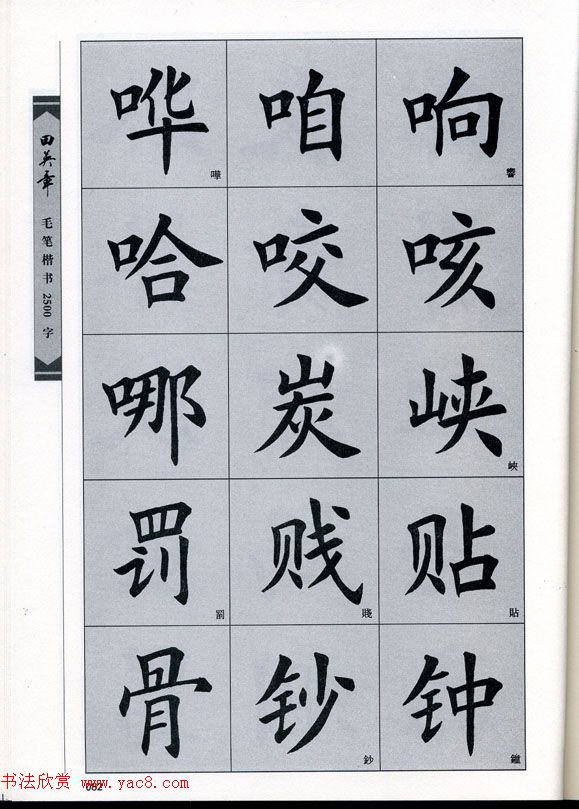 田英章
毛笔楷书2500字
哗 咱 响
嘩 響
哈 咬 咳
哪 炭 峡
峽
罚 贱 贴
罰 賤 貼
骨 钞 钟
鈔 鐘
书法欣赏 www.yac8.com
082